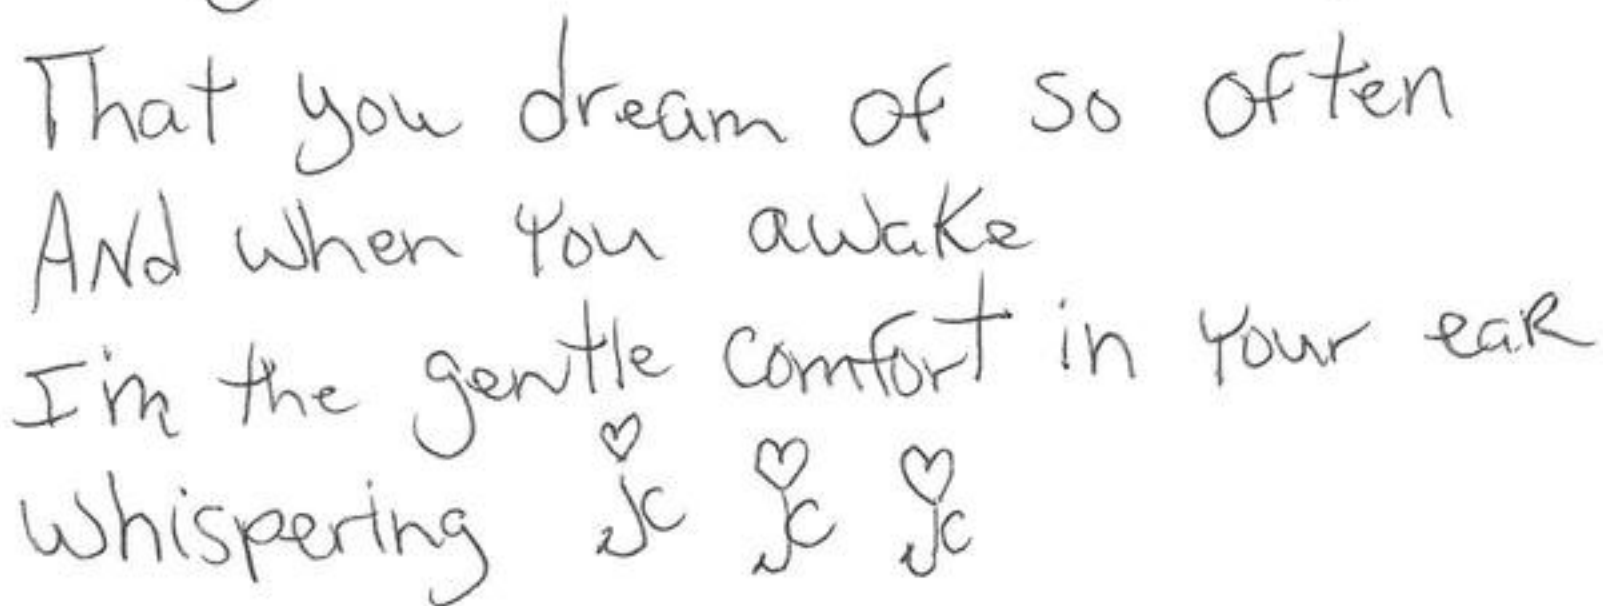 That you dream of so often
ANd when You awake
I'm the gentle comfort in Your eaR
whispering ♡ Jc ♡ Jc ♡ Jc